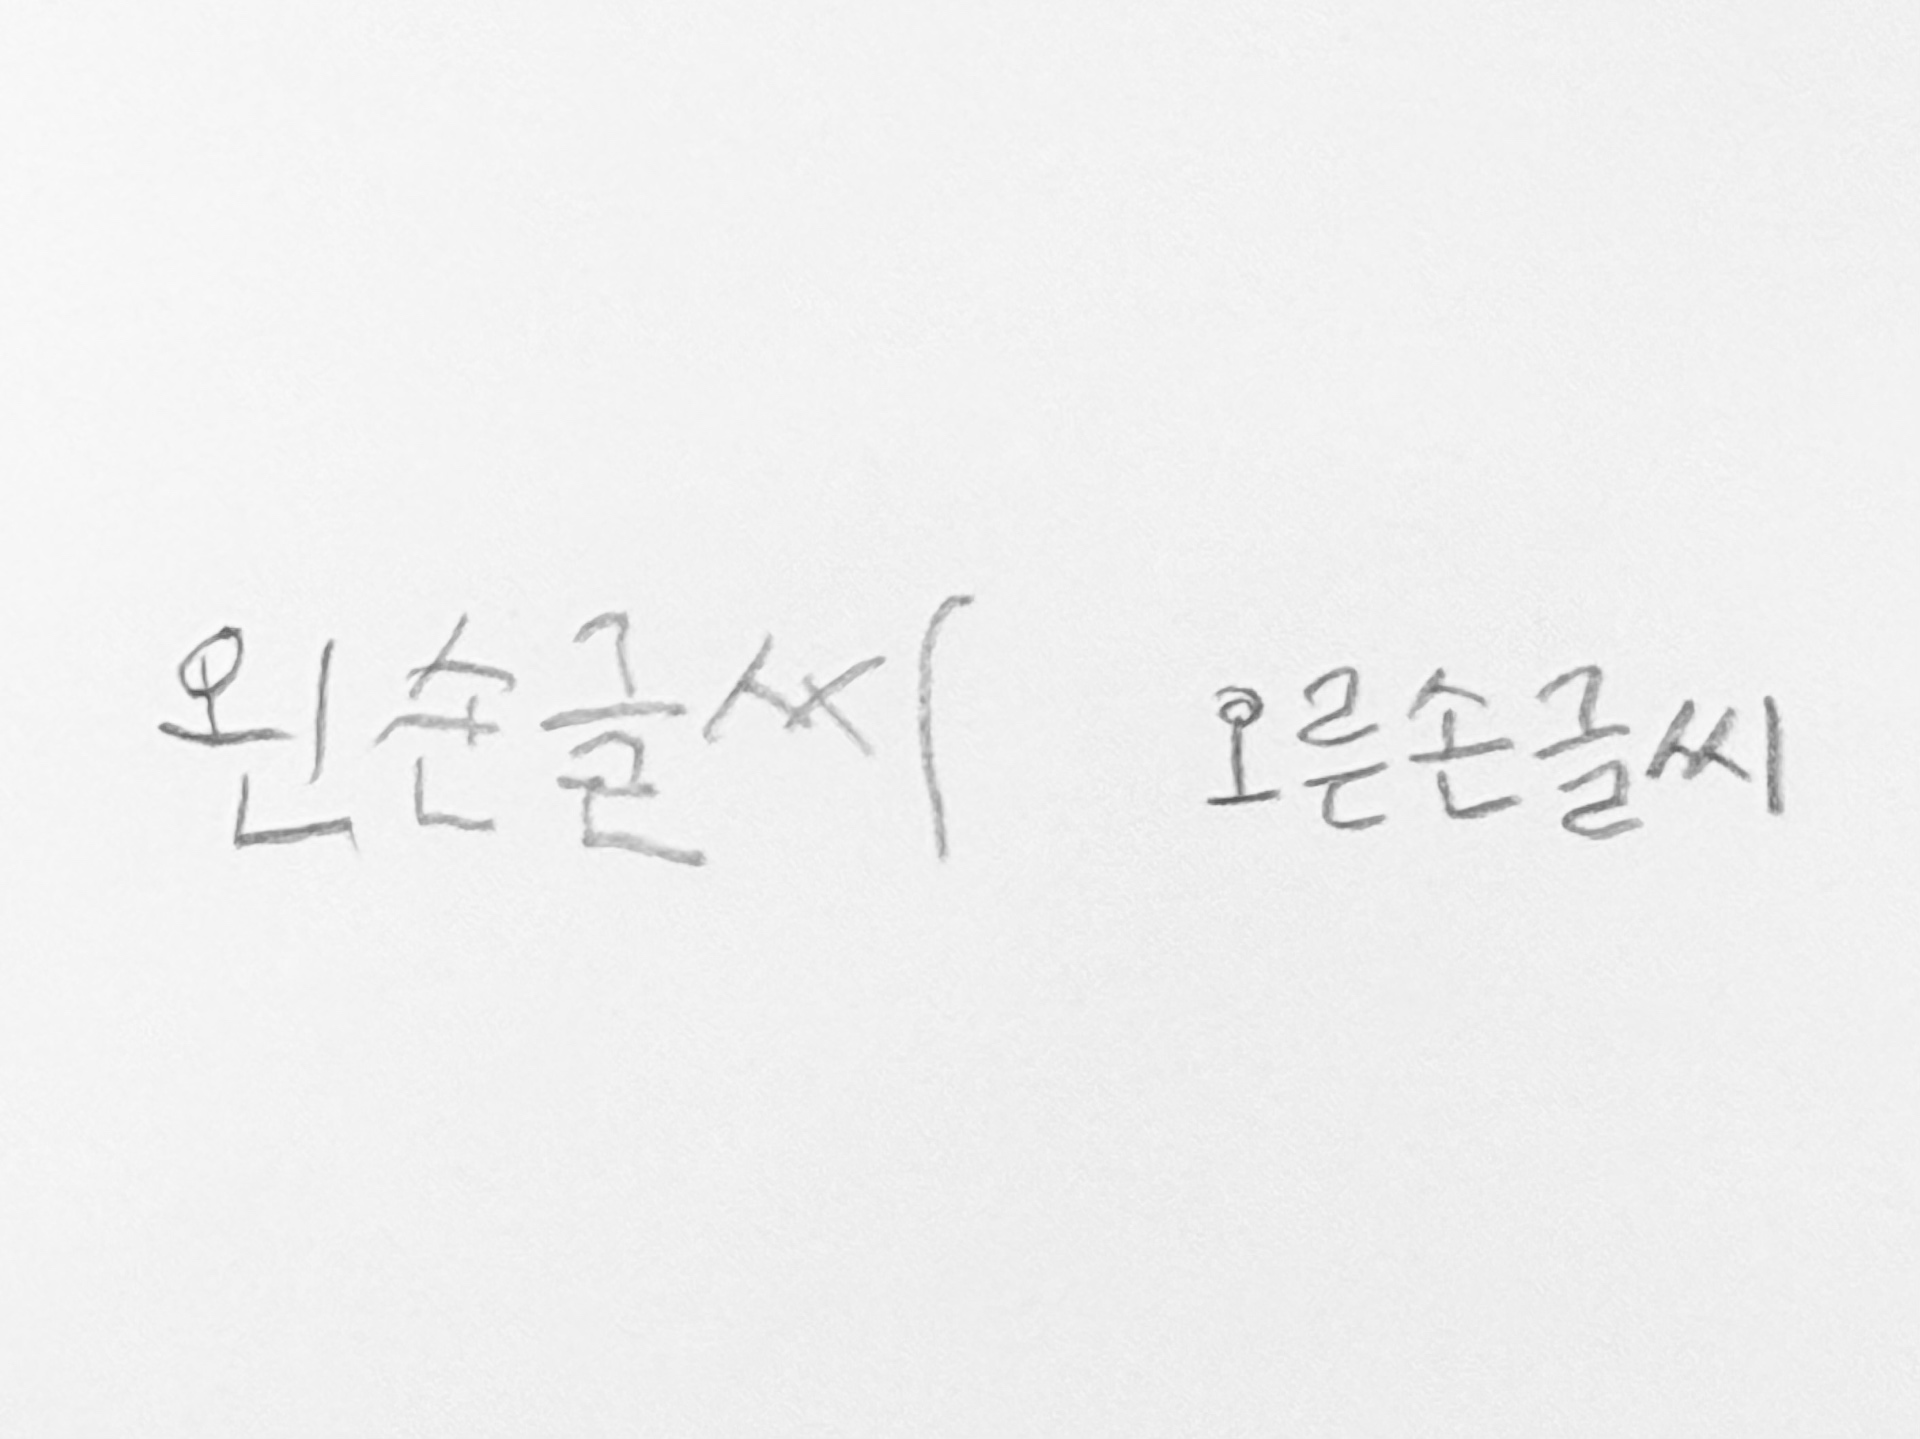 왼손글씨 오른손글씨